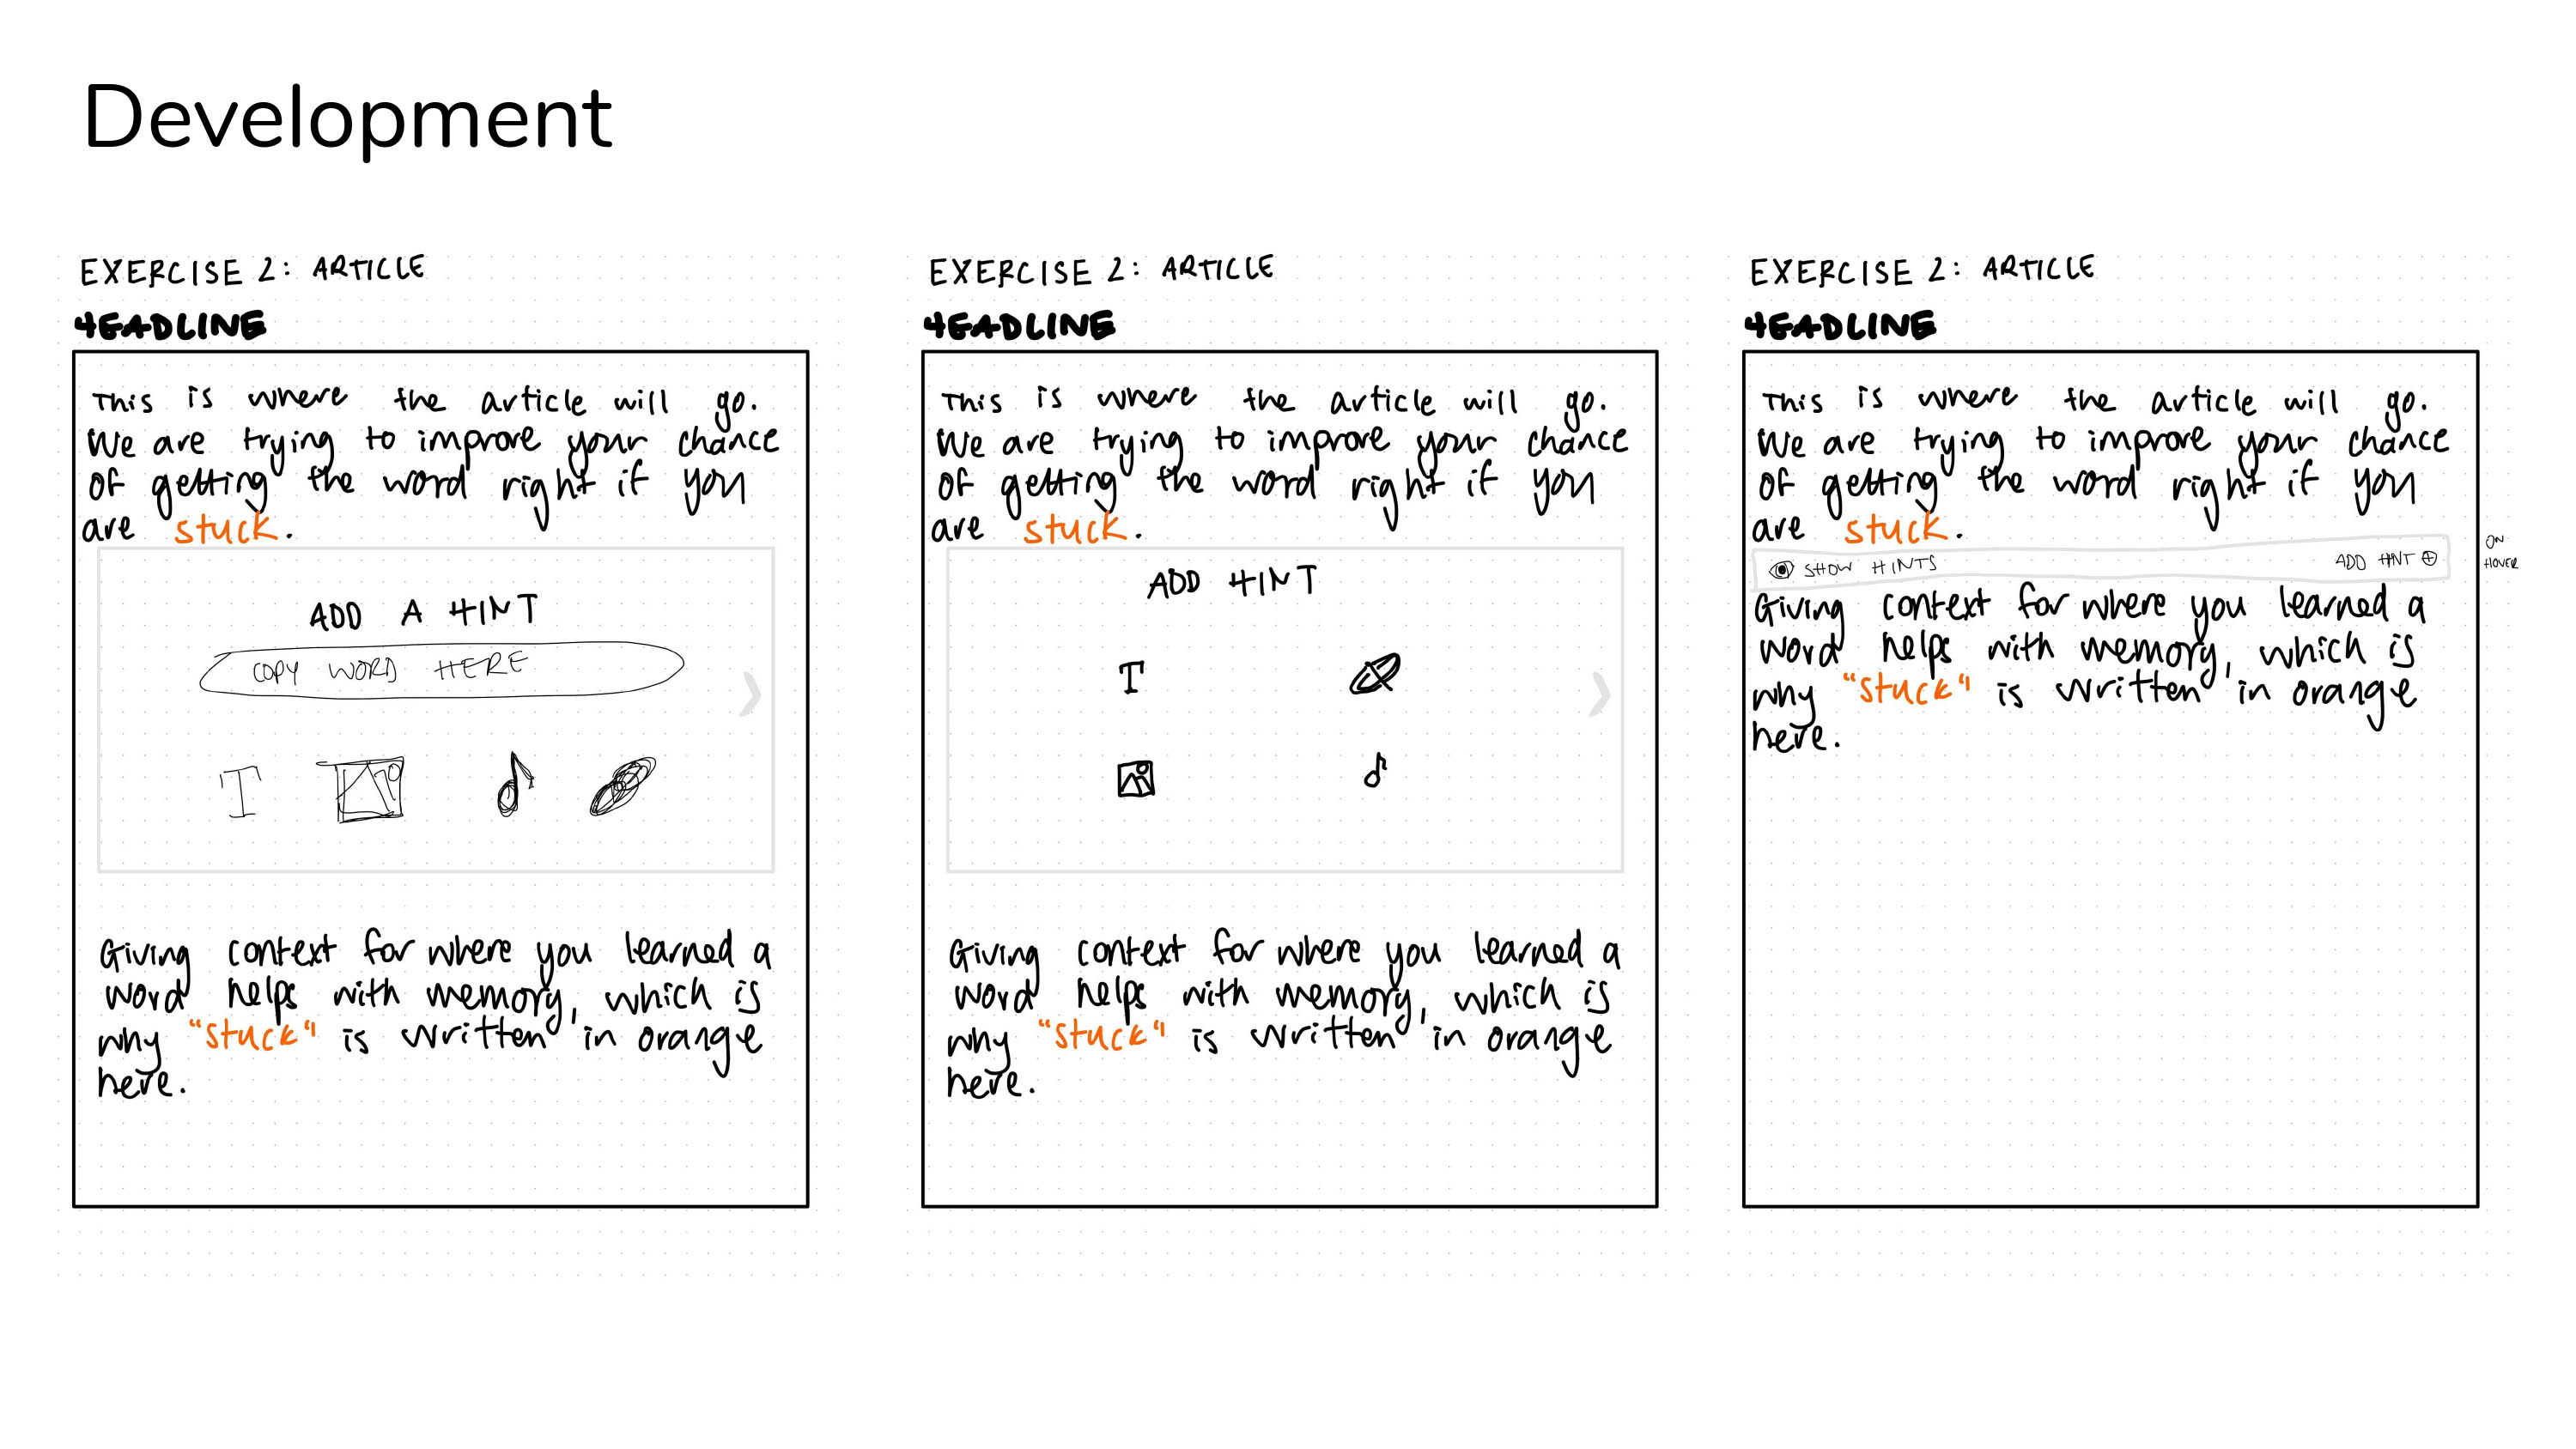 Development
EXERCISE 2: ARTICLE
HEADLINE
This is where the article will go.
We are trying to improve your chance
of getting the word right if you
are stuck.
ADD A HINT
COPY WORD HERE
T
Giving context for where you learned a
word helps with memory, which is
why "stuck" is written in orange
here.
EXERCISE 2: ARTICLE
HEADLINE
This is where the article will go.
We are trying to improve your chance
of getting the word right if you
are stuck.
ADD HINT
T
Giving context for where you learned a
word helps with memory, which is
why "stuck" is written in orange
here.
EXERCISE 2: ARTICLE
HEADLINE
This is where the article will go.
We are trying to improve your chance
of getting the word right if you
are stuck.
SHOW HINTS ADD HINT
ON
HOVER
Giving context for where you learned a
word helps with memory, which is
why "stuck" is written in orange
here.